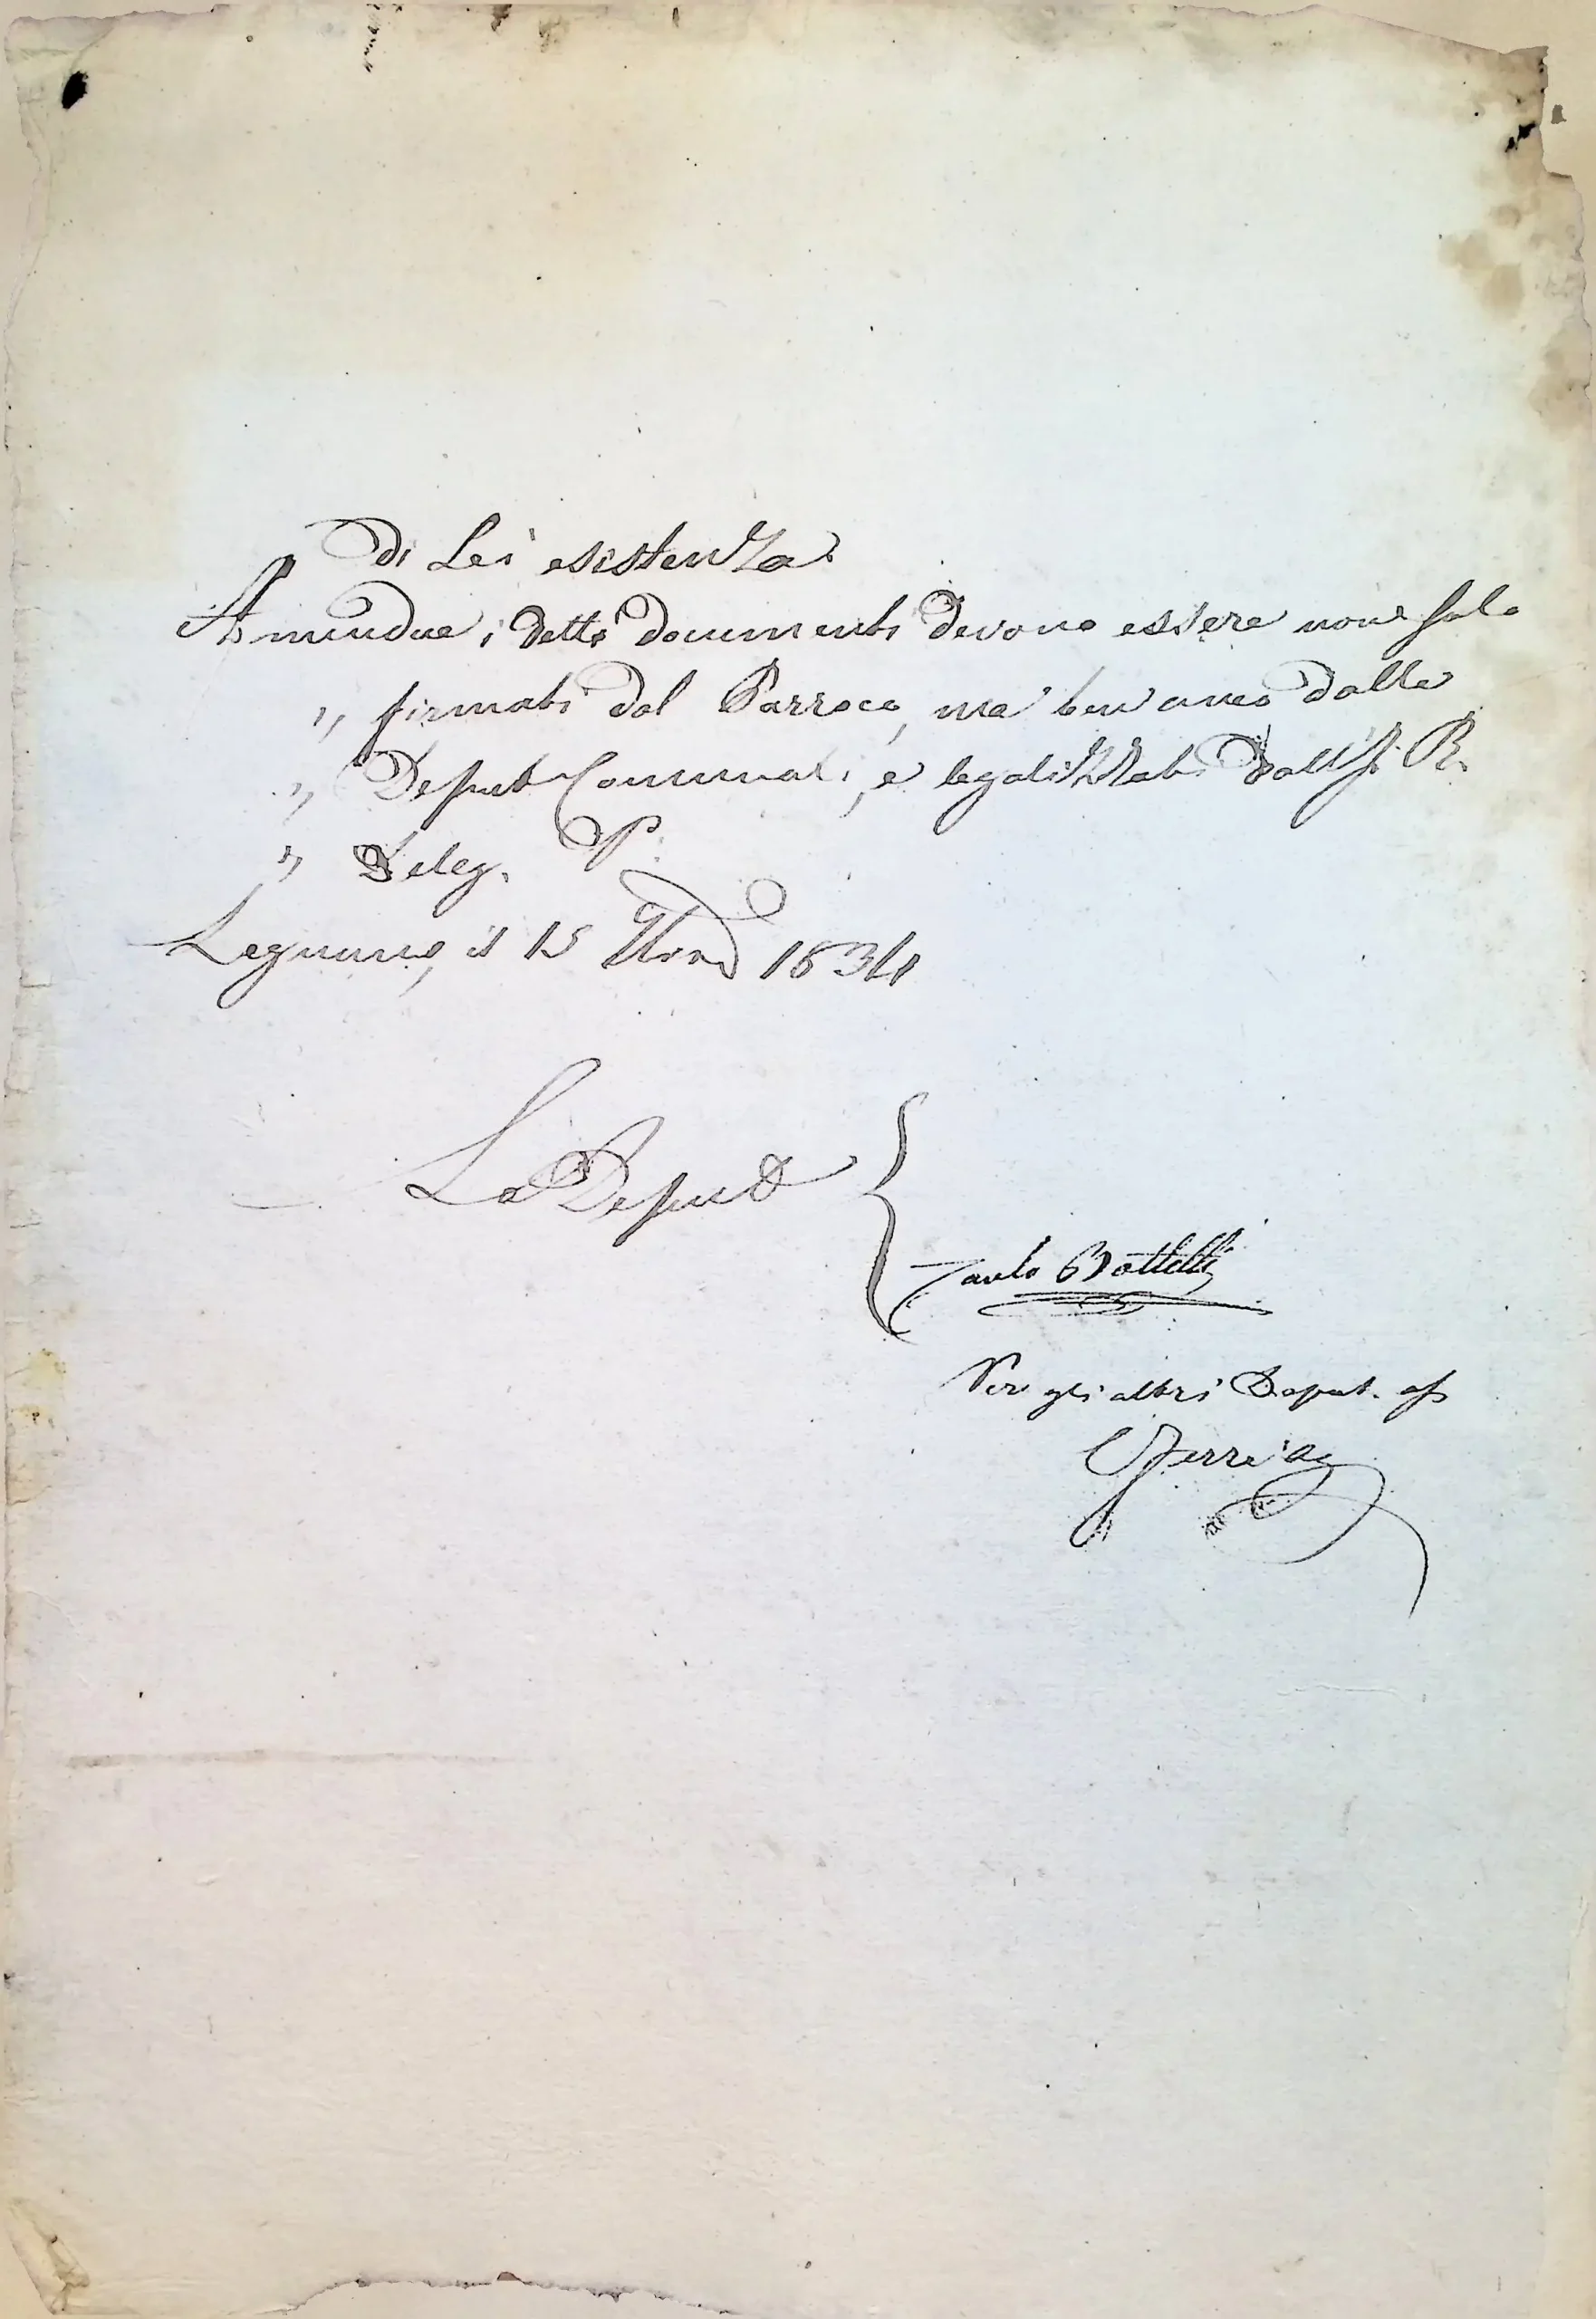 di Lei esistenza
Amendue i detti documenti devono essere non solo
" firmati dal Parroco, ma ben anco dalle
" Deput Comunali, e legalizzati dall'I. R.
" Deleg. P.
Legnano, il 15 1834
La Deput
Carlo Bottelli
Per gli altri Deput. ass